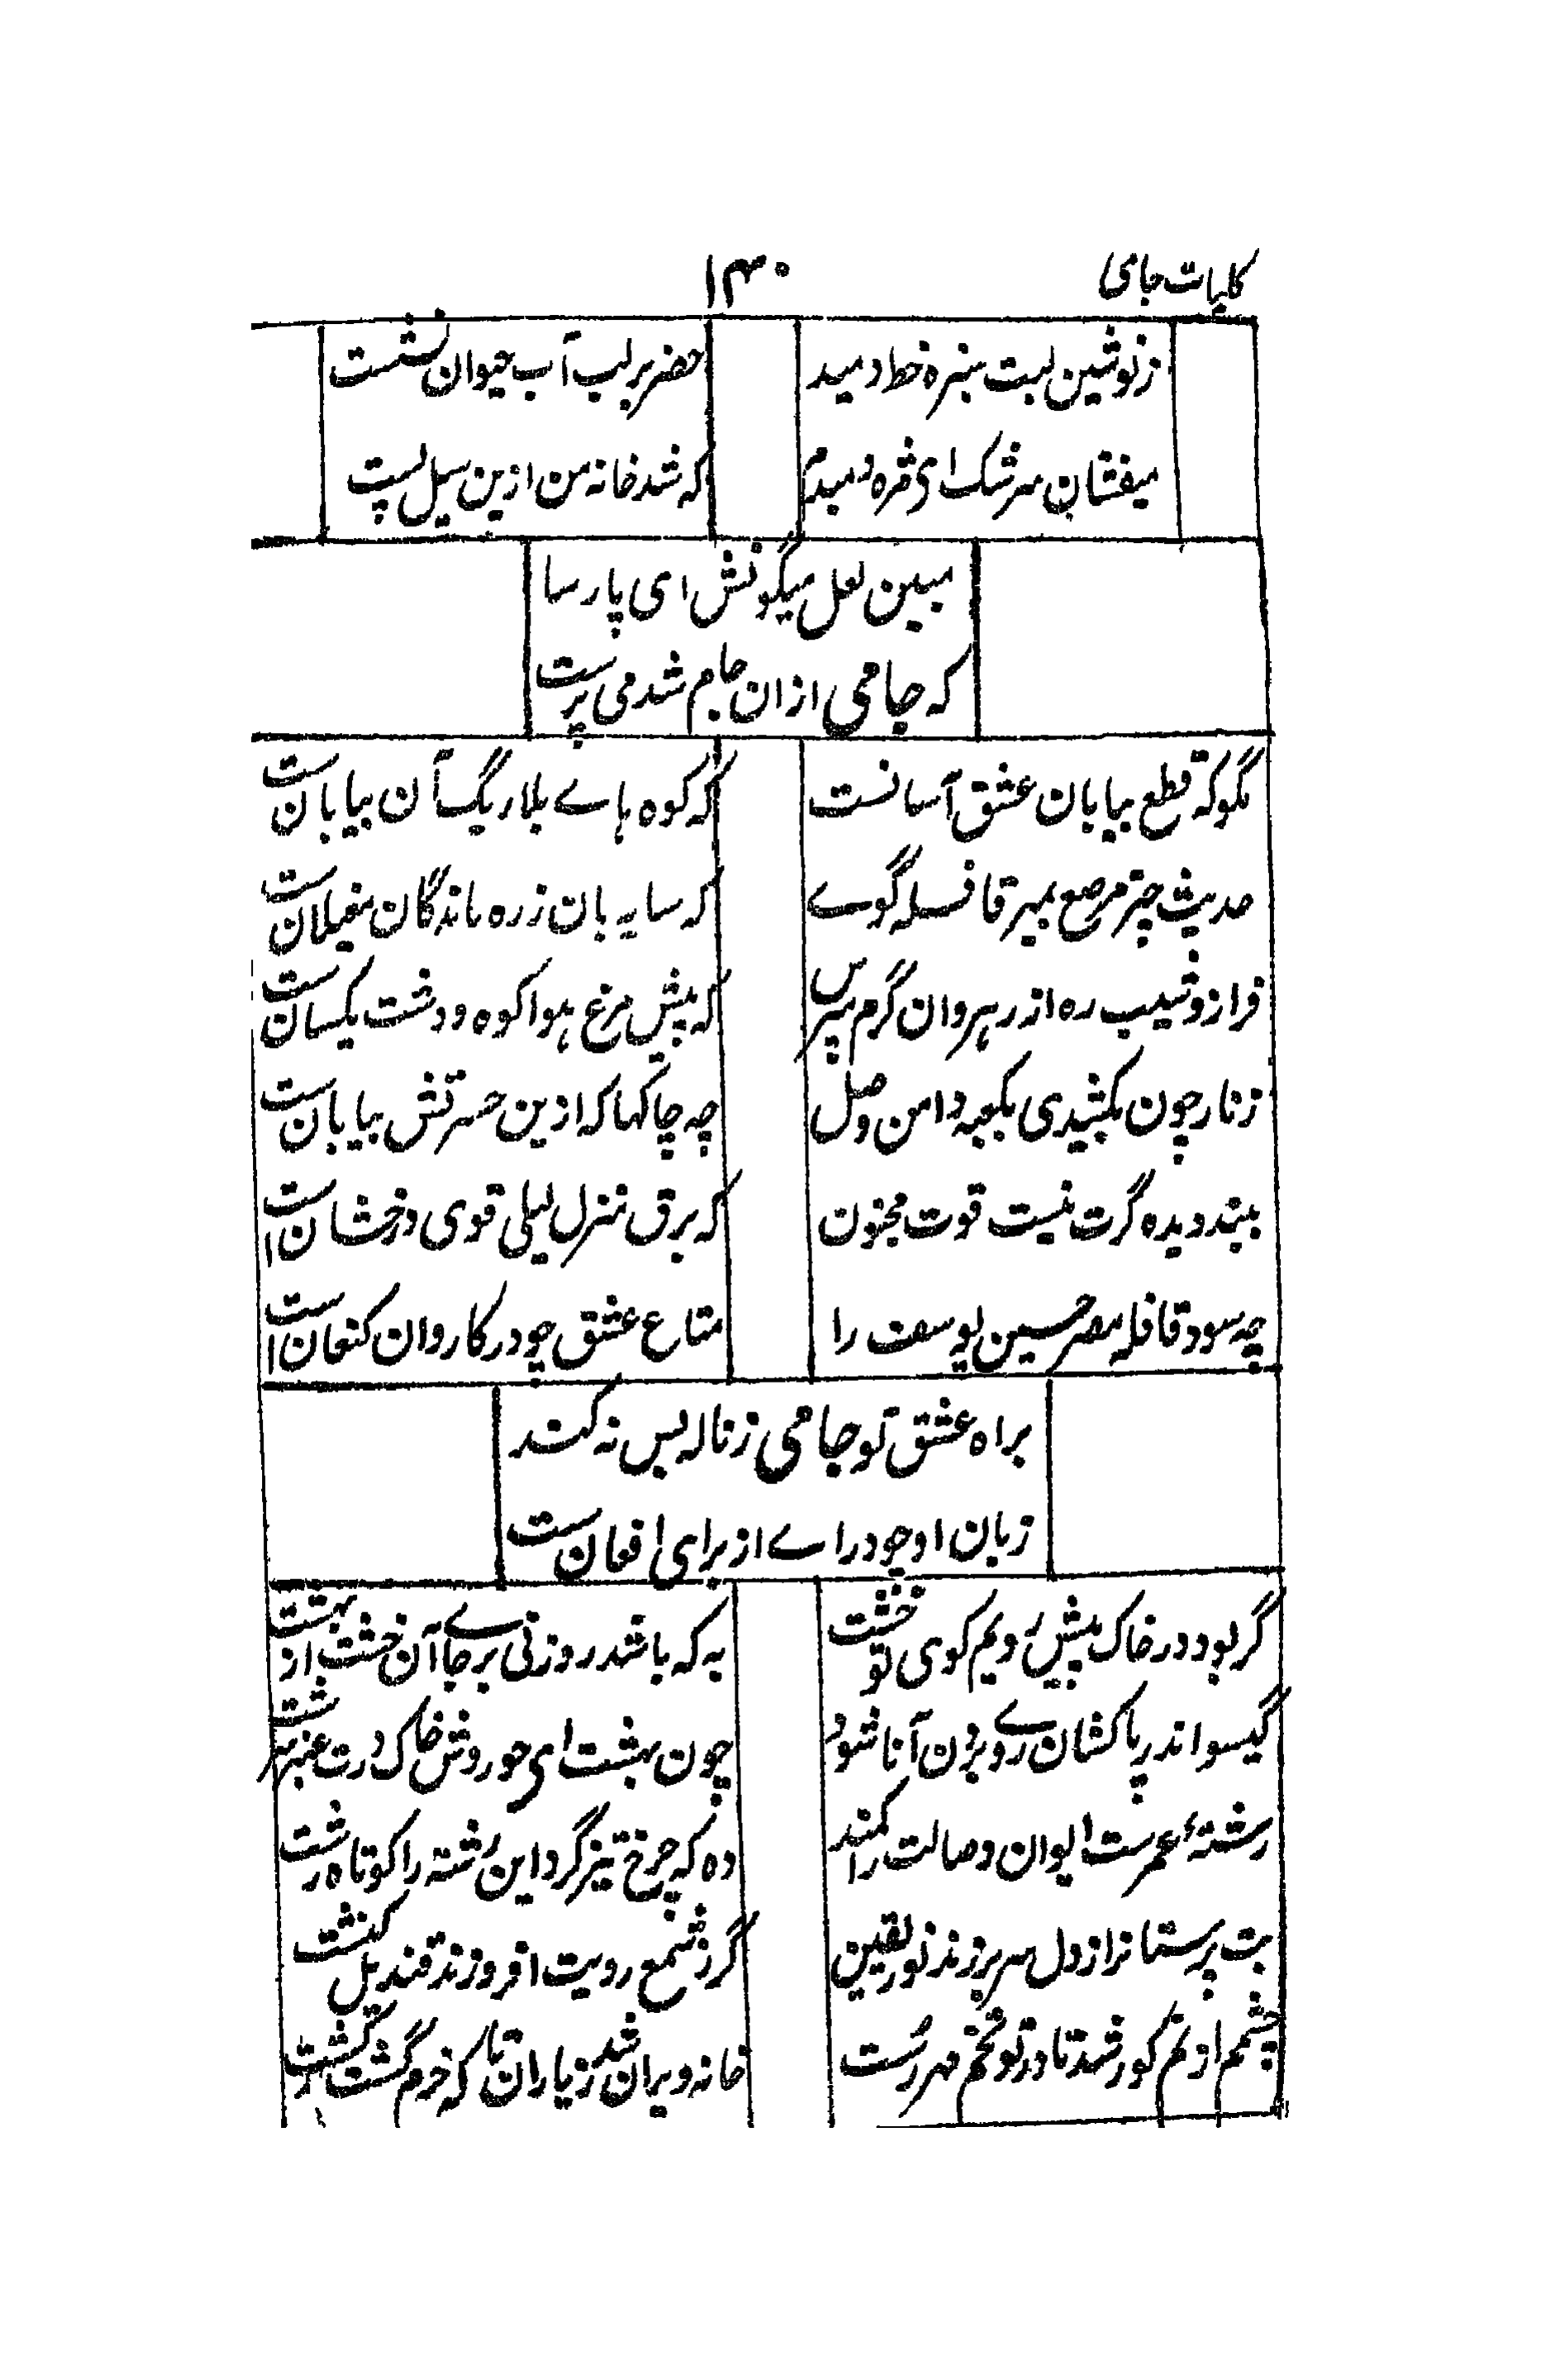 کلیات جامی
۱۳۰
زنوشین لبت سبزه خط دمید
خضر بر لب آب حیوان نشست
میفشان سرشک ای مژه دمبدم
که شد خانه من ازین سیل پست
مبین لعل میگونش ای پارسا
که جامی ازان جام شد می پرست
مگو که قطع بیابان عشق آسانست
که کوه هاے بلا ریگ آن بیابانست
حدیث چتر مرصع بمیر قافله گوے
که سایه بان زره ماندگان مغیلانست
فراز و شیب ره از رهروان گرم مپرس
که پیش مرغ هوا کوه و دشت یکسانست
زنار چون بکشیدی بکعبه دامن وصل
چه چاکها که ازین حسرتش بیابانست
ببند دیده گرت نیست قوت مجنون
که برق منزل لیلی قوی درخشان است
چه سود قافله مصر حسین یوسف را
متاع عشق چو در کاروان کنعان است
براه عشق تو جامی زناله بس نه کند
زبان او چو دراے از برای افغانست
گر بود در خاک پیش رویم کوی تو خشت
به که باشد روزنی برجاے آن خشت از بهشت
گیسو اندر پاکشان رے و برون آ تا شود
چون بهشت ای حوروش خاک درت عنبر سرشت
رشتهٔ عمرست ایوان وصالت را کمند
ده که چرخ تیز گرد این رشته را کوتاه رشت
بت پرستانرا ز دل سر برزند نور یقین
گر ز شمع رویت افروزند قندیل کنشت
چشمم از نم کور شد تا در تو تخم مهر رست
خانه ویران شد زیاران تا که خرم گشت کشت